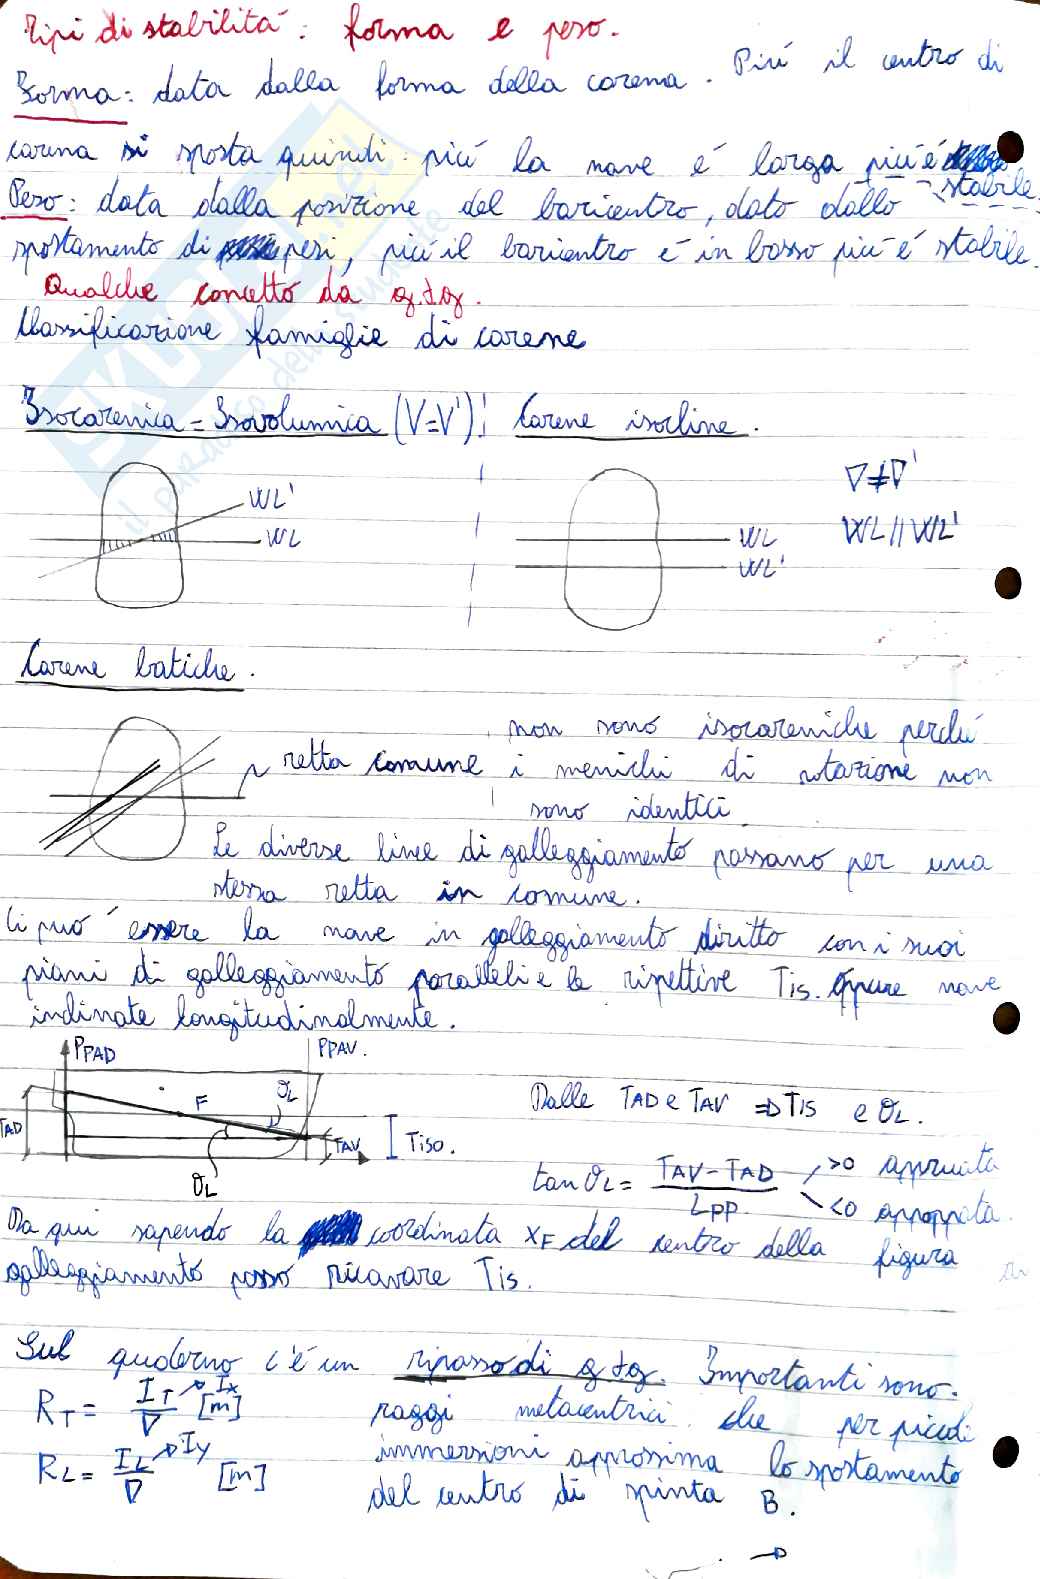 Tipi di stabilità: forma e peso.
Forma: data dalla forma della carena. Più il centro di
carena si sposta quindi più la nave é larga più é
stabile.
Peso: data dalla posizione del baricentro, dato dallo
spostamento di pesi, più il baricentro é in basso più é stabile.
Qualche concetto da g.d.g.
Classificazione famiglie di carene
Isocarenica = Isovolumica (V=V')
Carene isocline.
WL'
WL
WL
WL'
∇≠∇'
WL//WL'
Carene batiche.
retta comune
non sono isocareniche perché
i menischi di rotazione non
sono identici
Le diverse linee di galleggiamento passano per una
stessa retta in comune.
Ci può essere la nave in galleggiamento diritto con i suoi
piani di galleggiamento paralleli e le rispettive Tis. oppure nave
inclinate longitudinalmente.
PPAD
PPAV.
F
θL
TAD
TAV
Tiso.
θL
Dalle TAD e TAV ⇒ TIS e θL.
tanθL = TAV-TAD / LPP
>0 appruata
<0 appoppata.
Da qui sapendo la coordinata XF del centro della figura
galleggiamento posso ricavare Tis.
Sul quaderno c'é un ripasso di g d g. Importanti sono
RT = IT/∇ [m]
Ix
raggi metacentrici che per piccole
RL = IL/∇ [m]
Iy
immersioni approssima lo spostamento
del centro di spinta B.
SKUOLA.net
il paradiso dello studente